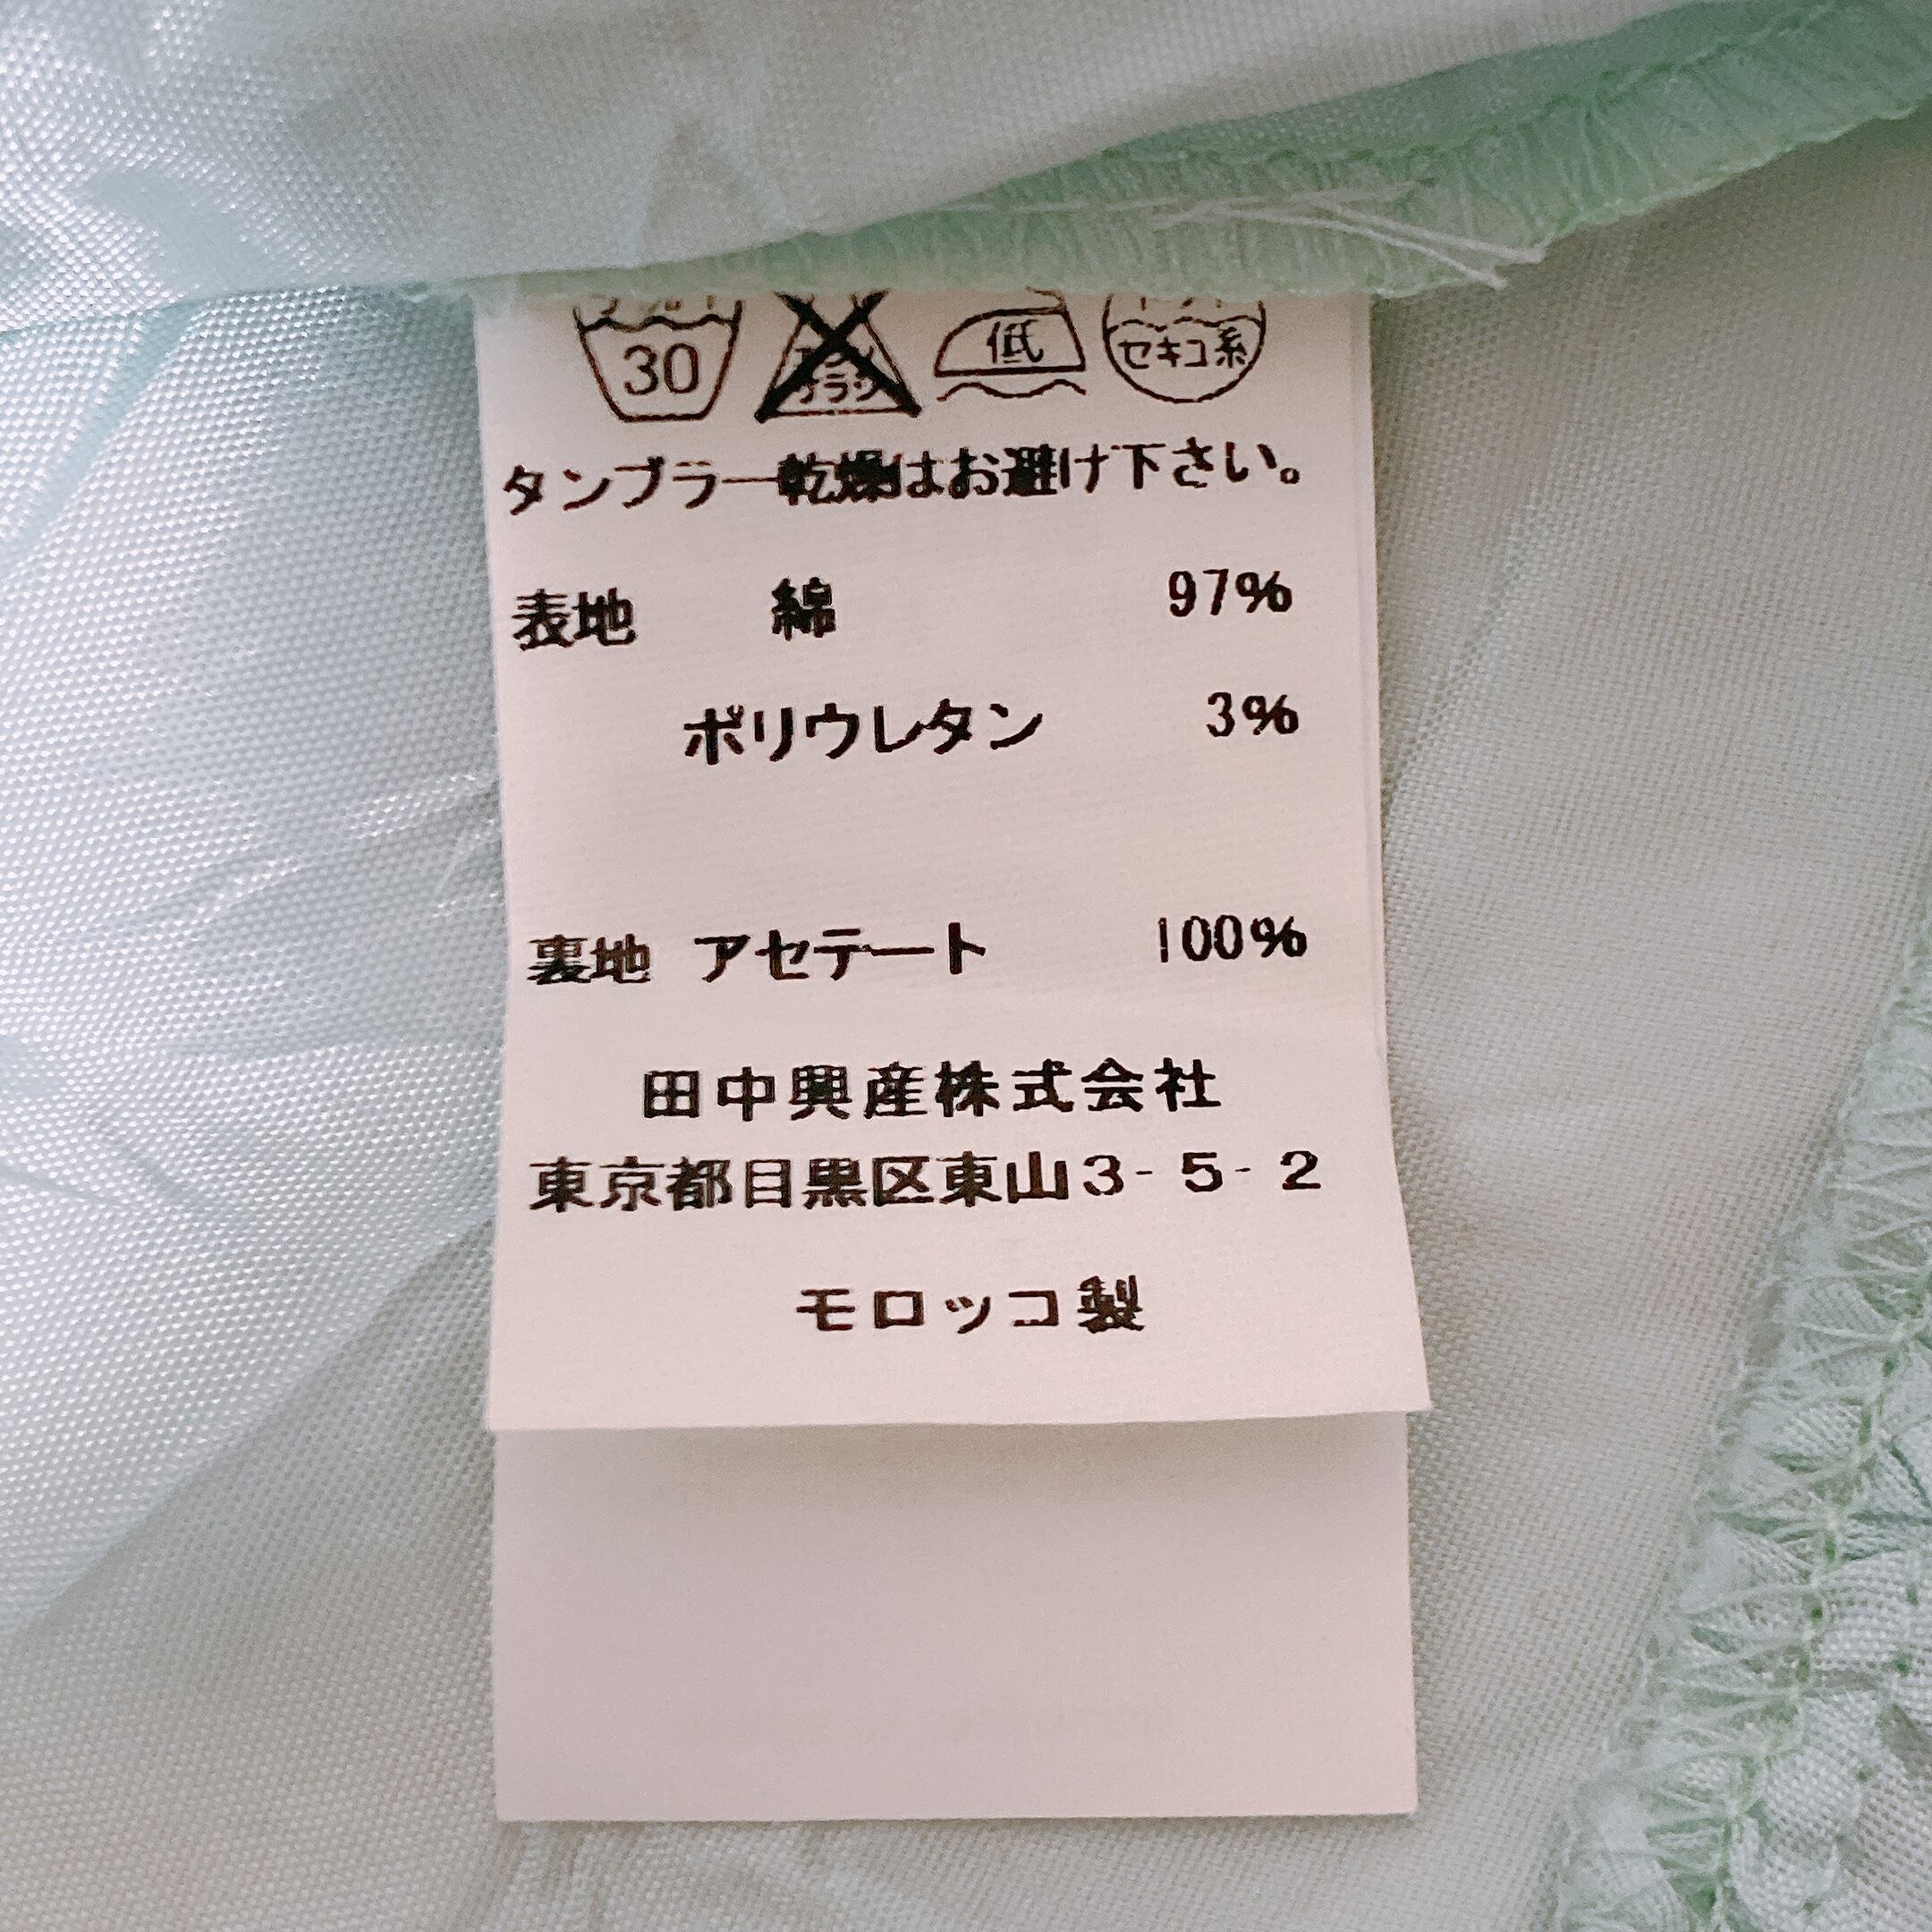 30 低 セキユ系
タンブラー乾燥はお避け下さい。
表地 綿 97%
ポリウレタン 3%
裏地 アセテート 100%
田中興産株式会社
東京都目黒区東山3-5-2
モロッコ製